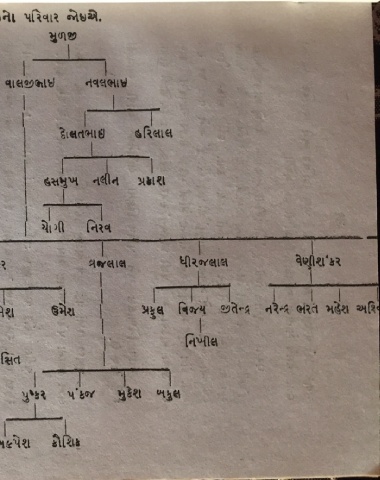 પરિવાર જોઇએ.
મુળજી
વાલજીભાઇ નવલભાઇ
દોલતભાઇ હરિલાલ
હસમુખ નલીન પ્રકાશ
યોગી નિરવ
વ્રજલાલ ધીરજલાલ વેણીશંકર
ઉમેશ પ્રફુલ વિજય જીતેન્દ્ર નરેન્દ્ર ભરત મહેશ
નિખીલ
પુષ્કર પંકજ મુકેશ બકુલ
કૌશિક